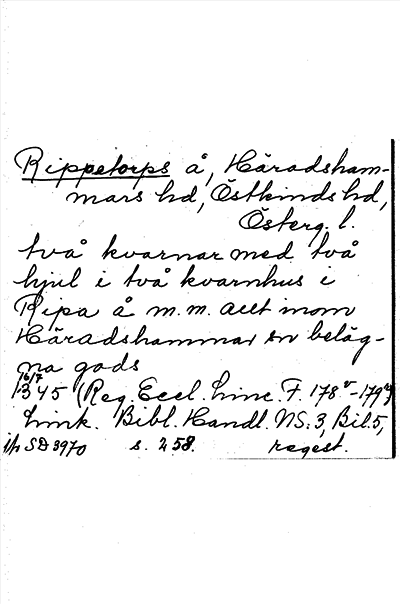 Rippetorps å, Häradsham-
mars hd, Östkinds hd,
Österg. l.
två kvarnar med två
hjul i två kvarnhus i
Ripa å m.m. allt inom
Häradshammar sn beläg-
na gods
16/7
1345 (Reg. Eccl. Linc. F. 178v-179v)
Link. Bibl. Handl. NS: 3, Bil. 5,
SD 3970 s. 258. regest.